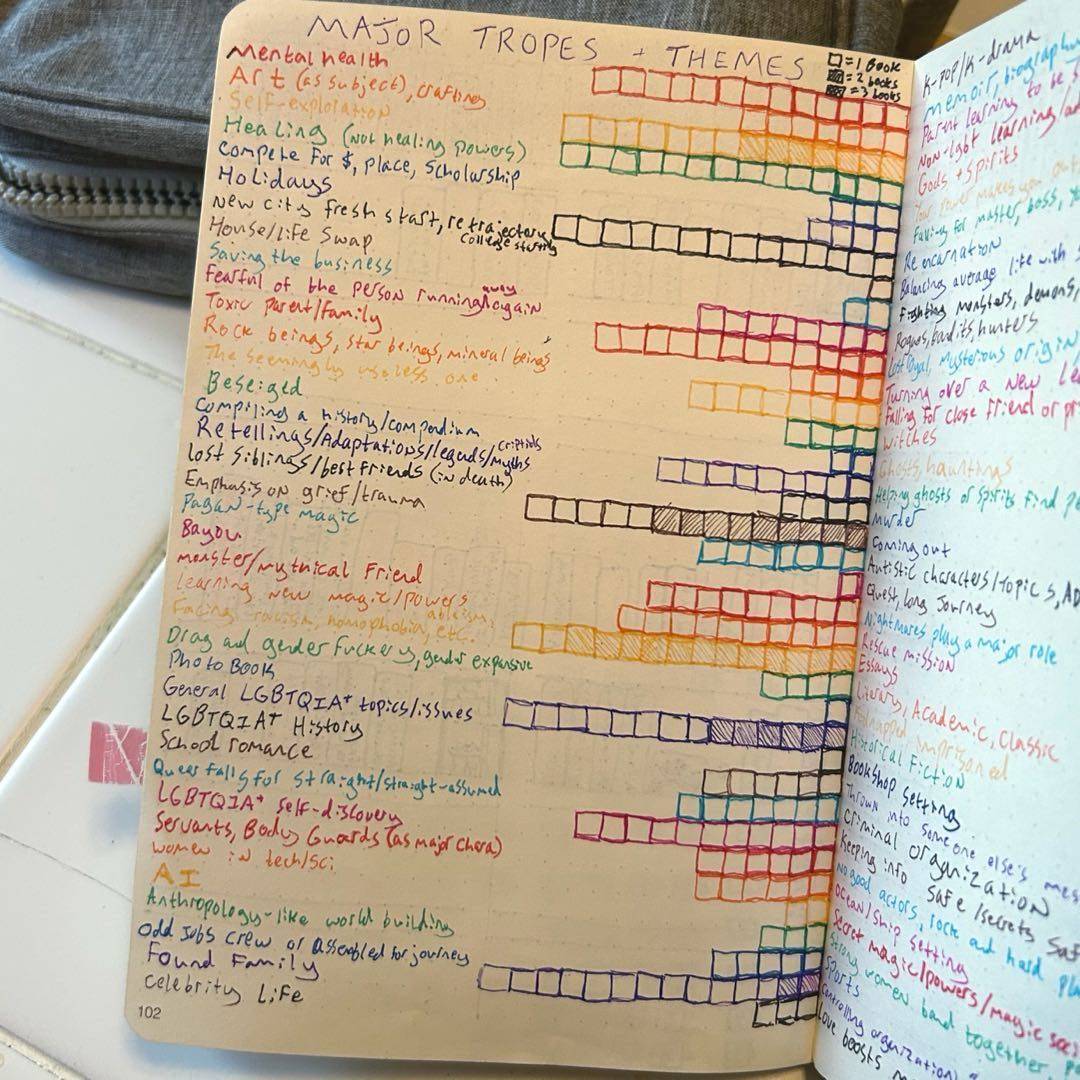 MAJOR TROPES + THEMES
□ = 1 Book
= 2 books
= 3 books
Mental health
Art (as subject), crafting
Self-exploration
Healing (not healing powers)
Compete for $, place, scholarship
Holidays
New city fresh start, retrajectory
College starting
House/Life Swap
Saving the business
Fearful of the person running away again
Toxic parent/family
Rock beings, star beings, mineral beings
The seemingly useless one
Beseiged
Compiling a history/compendium
Retellings/Adaptations/legends/myths
criptids
Lost siblings/best friends (in death)
Emphasis on grief/trauma
Pagan-type magic
Bayou
monster/mythical Friend
Learning new magic/powers
Facing racism, homophobia, ableism, etc.
Drag and gender fuckery, gender expansive
Photo Book
General LGBTQIA+ topics/issues
LGBTQIA+ History
School romance
Queer falls for straight/straight-assumed
LGBTQIA+ self-discovery
Servants, Body Guards (as major chara)
women in tech/sci
AI
Anthropology-like world building
Odd Jobs crew or assembled for journey
Found Family
Celebrity Life
102
K-pop/K-drama
memoir, biography
Parent learning to be
Non-lgbt learning
Gods + Spirits
Your power makes you
Falling for master, boss,
Reincarnation
Balancing average life with
Fighting monsters, demons,
Rogues, bandits, hunters
Lost royal, Mysterious origin
Turning over a new
Falling for close friend or
witches
Ghosts, hauntings
Helping ghosts or spirits find
Murder
Coming out
Autistic characters/topics,
Quest, long journey
Nightmares play a major role
Rescue mission
Essays
Literary, Academic, Classic
Kidnapped imprisoned
Historical Fiction
Bookshop setting
Thrown into someone else's mess
Criminal organization
Keeping info safe/secrets
No good actors, rock and hard
Ocean/ship setting
Secret magic/powers/magic
Strong women band together,
Sports
Controlling organization
Love boosts